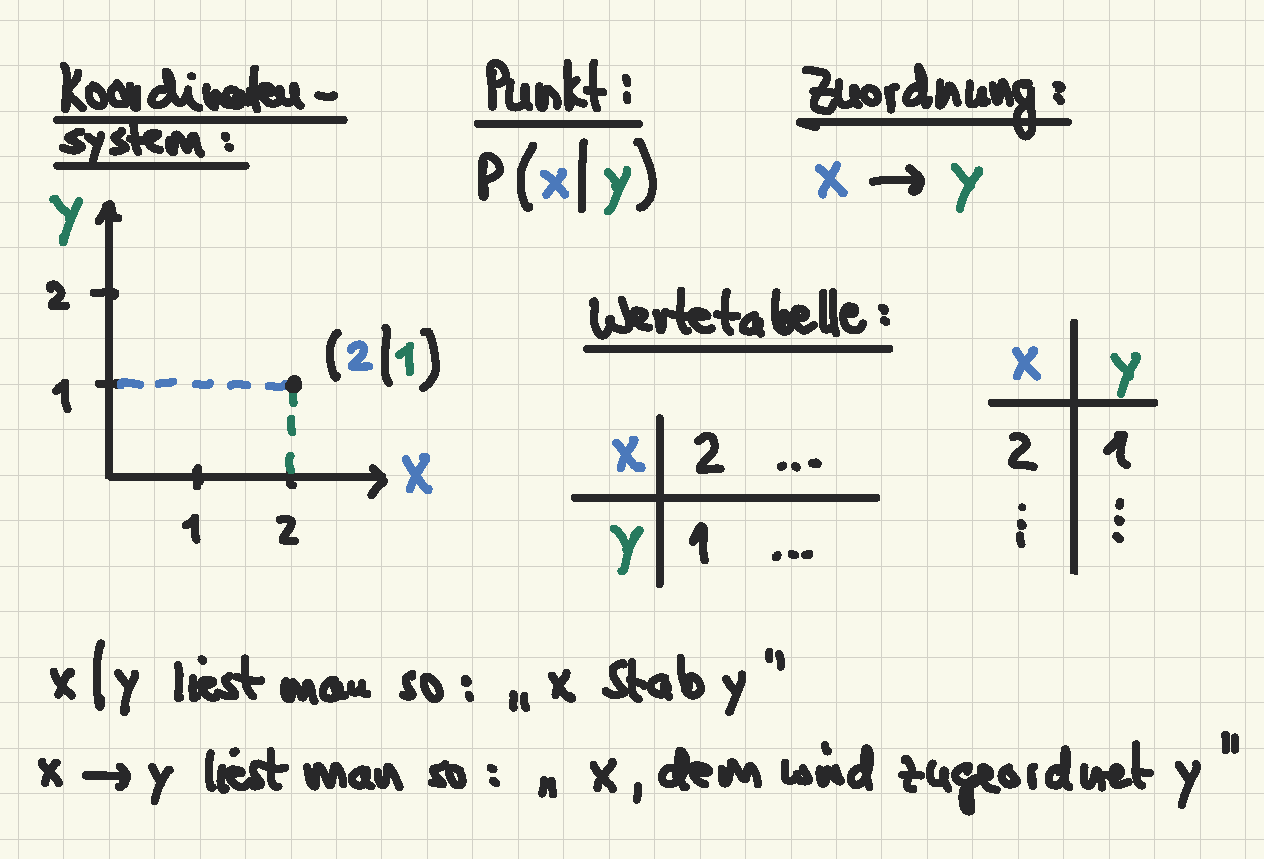 Koordinaten-
system:
y
2
1
(2|1)
x
1 2
Punkt:
P(x|y)
Zuordnung:
x → y
Wertetabelle:
x | 2 ...
y | 1 ...
x | y
2 | 1
⋮ | ⋮
x|y liest man so: „x Stab y"
x → y liest man so: „x, dem wird zugeordnet y"